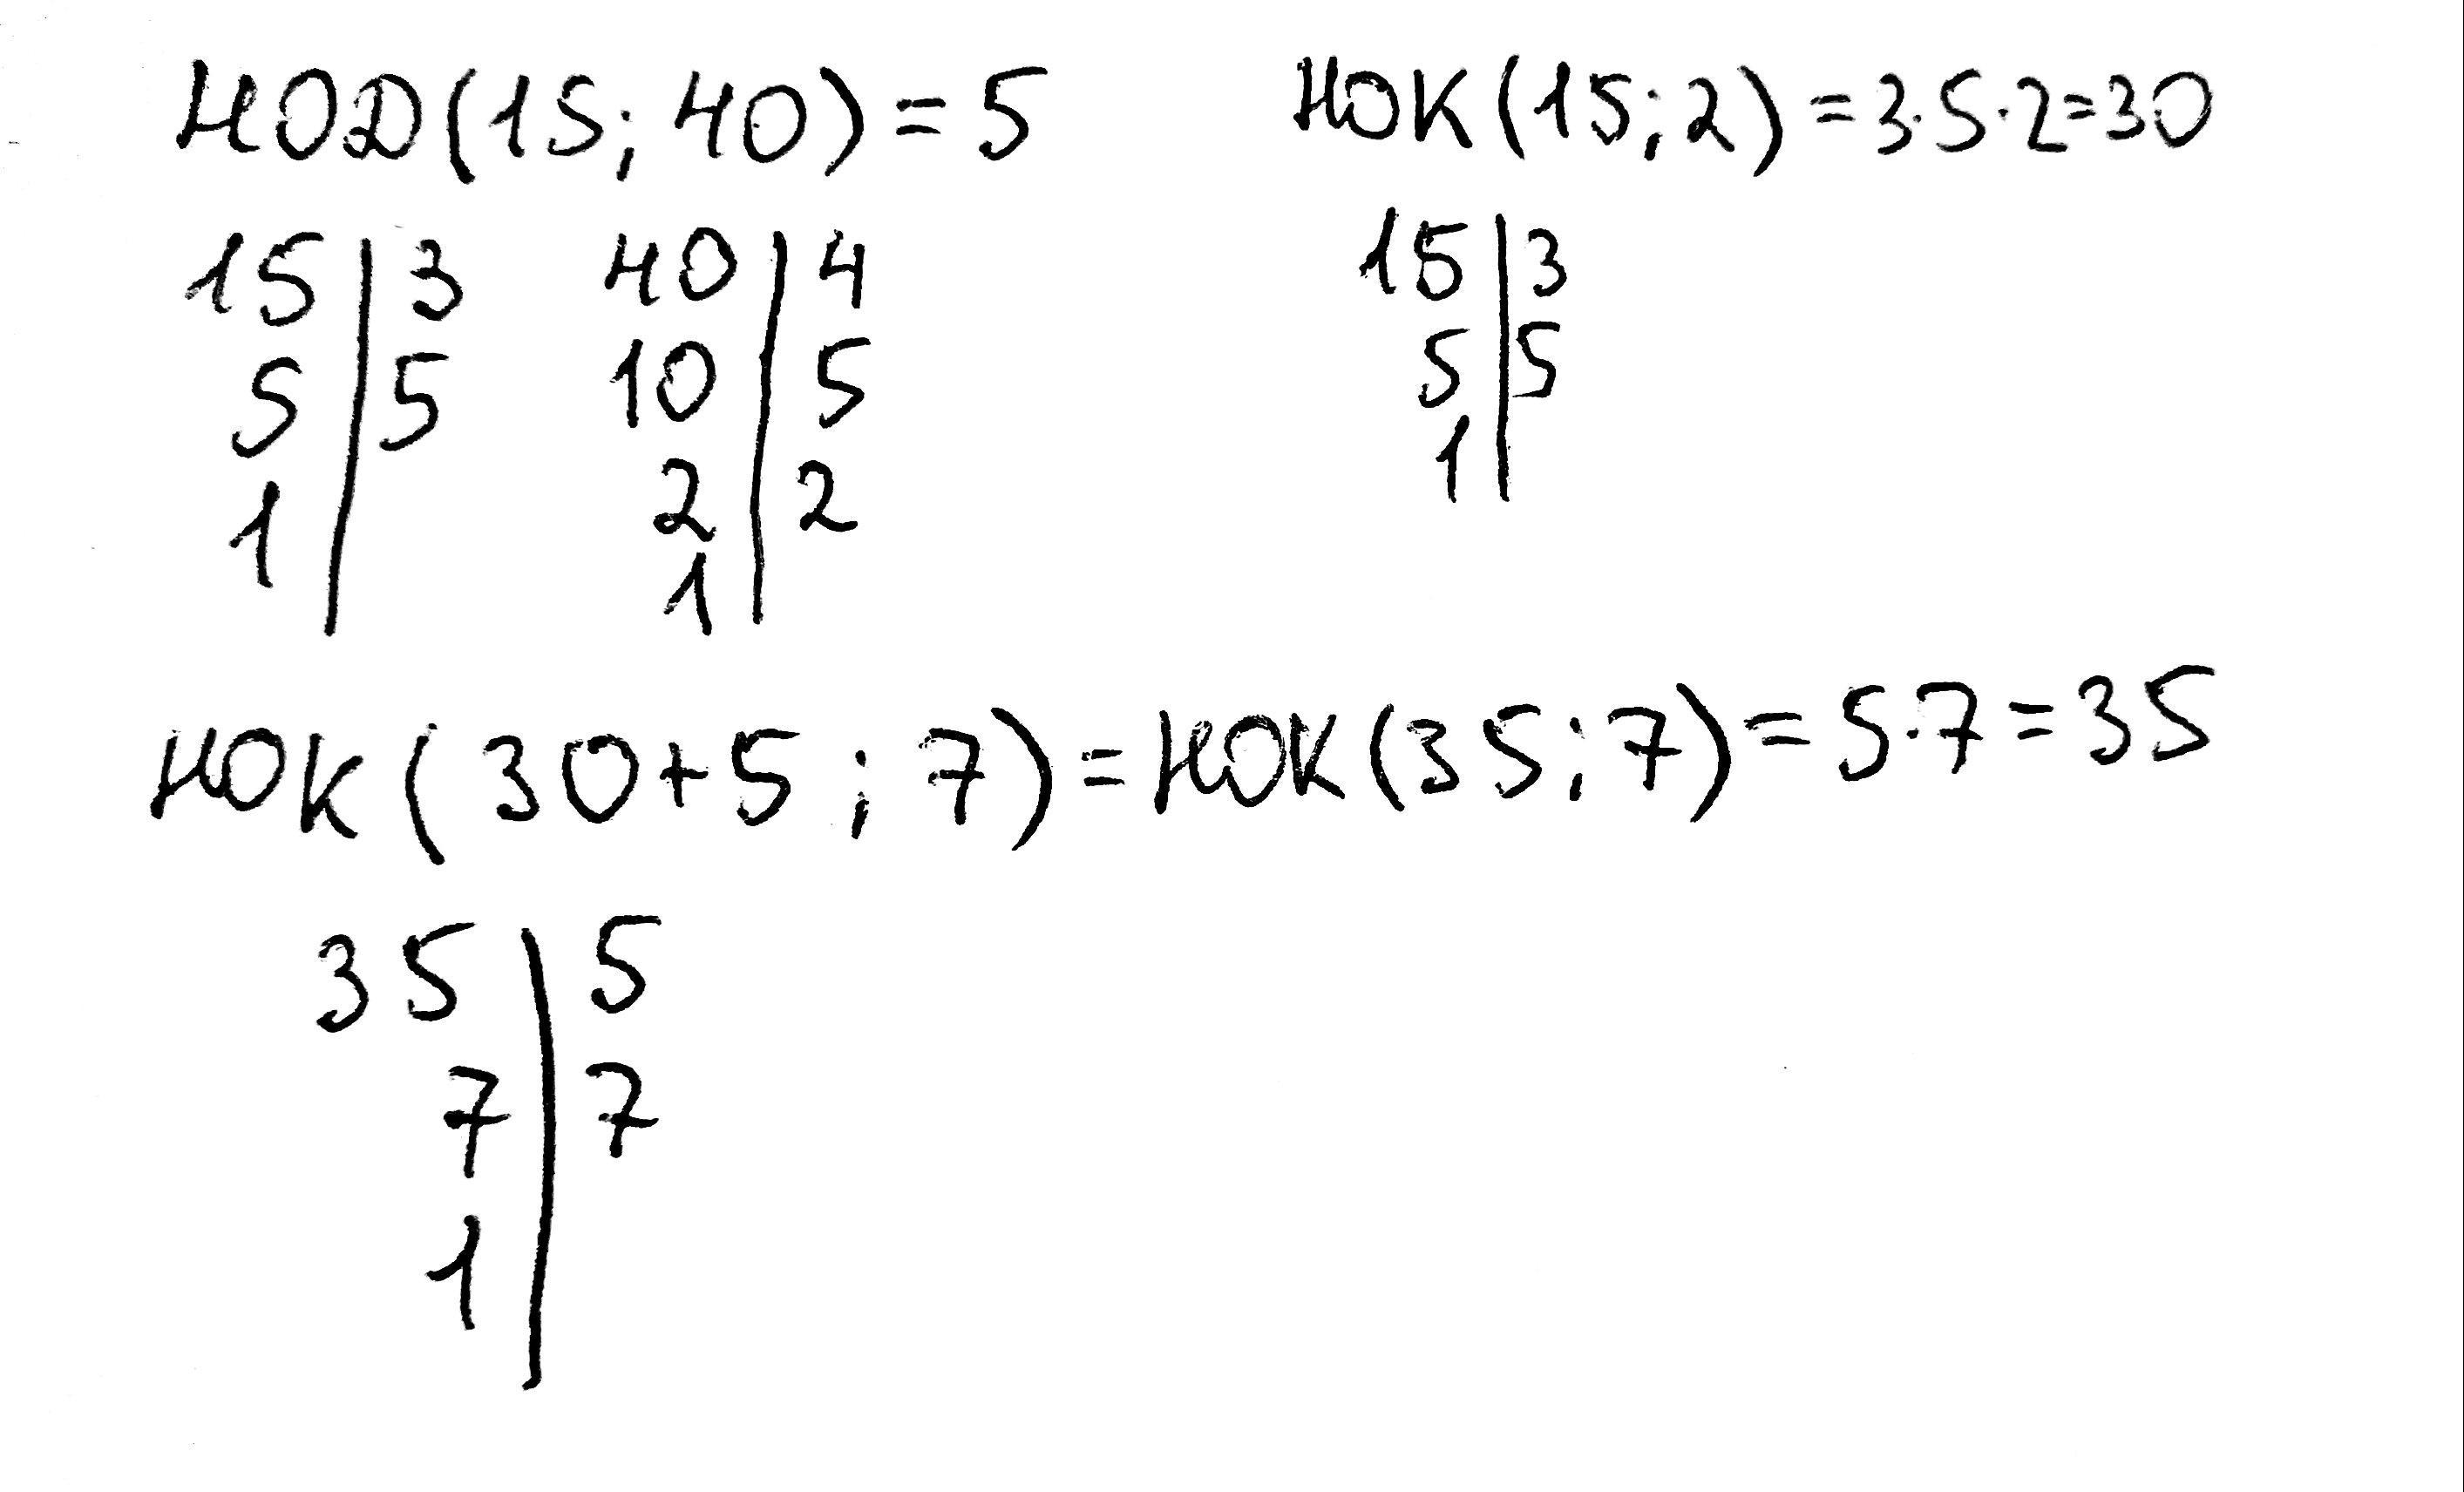 НОД(15; 40) = 5 НОК(15;2) = 3·5·2=30
15 | 3 40 | 4 15 | 3
5 | 5 10 | 5 5 | 5
1 | 2 | 2 1 |
1 |
НОК(30+5 ; 7) = НОК(35;7) = 5·7 = 35
35 | 5
7 | 7
1 |